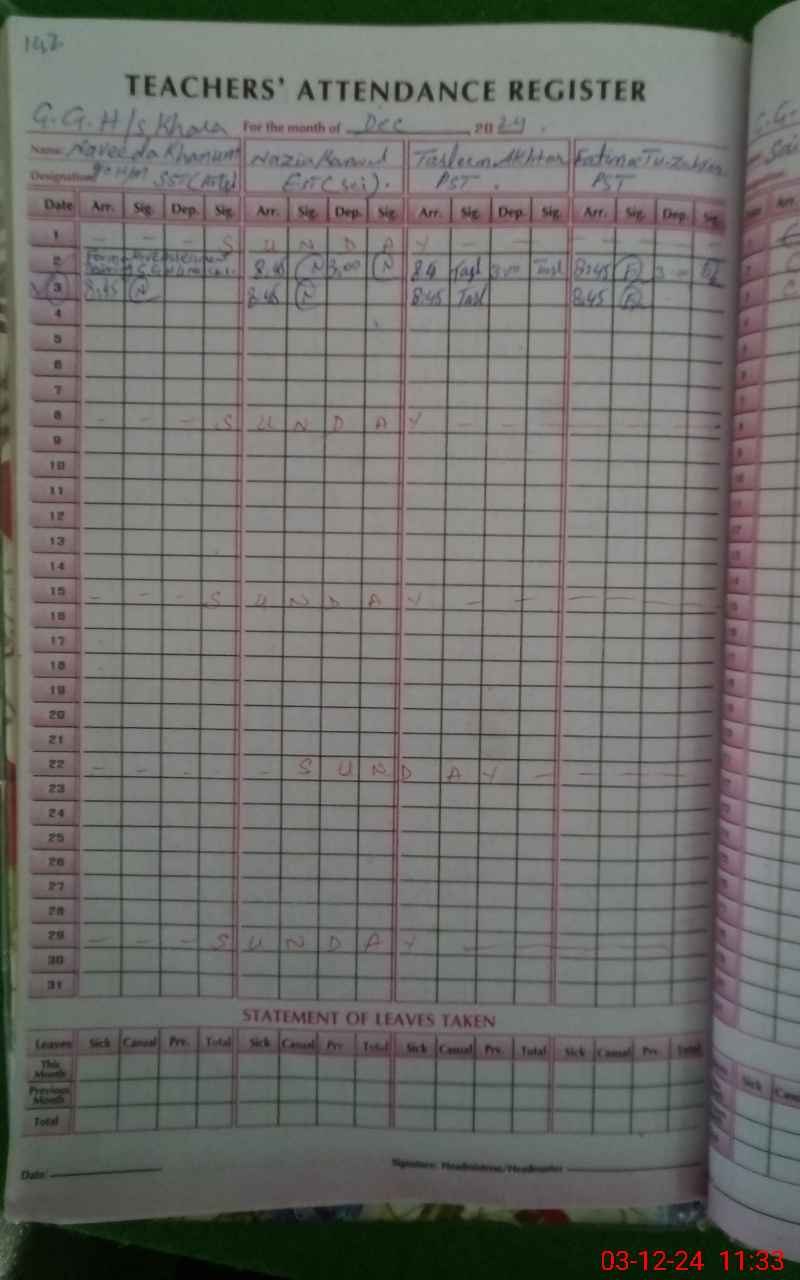 142
TEACHERS' ATTENDANCE REGISTER
G.G.H/s Khara For the month of Dec 2024.
Name: Naveeda Khanum Nazia Kanwal Tasleem Akhtar Fatima Tu-Zahra
Designation SST(Arts) EST(Sci). PST. PST
Date Arr. Sig. Dep. Sig. Arr. Sig. Dep. Sig. Arr. Sig. Dep. Sig. Arr. Sig. Dep. Sig.
1 - - - S U N D A Y - - - - -
2 8.45 N 3.00 N 8.45 Tasl 3.00 Tasl 8.45 F 3.00 F
3 8.45 N 8.45 N 8.45 Tasl 8.45 F
4
5
6
7
8 - - - S U N D A Y - - - - - -
9
10
11
12
13
14
15 - - - S U N D A Y - - - - - -
16
17
18
19
20
21
22 - - - - - S U N D A Y - - - - -
23
24
25
26
27
28
29 - - - S U N D A Y - -
30
31
STATEMENT OF LEAVES TAKEN
Leaves Sick Casual Prv. Total Sick Casual Prv. Total Sick Casual Prv. Total Sick Casual Prv. Total
This Month
Previous Month
Total
Date: Signature: Headmistress/Headmaster
03-12-24 11:33